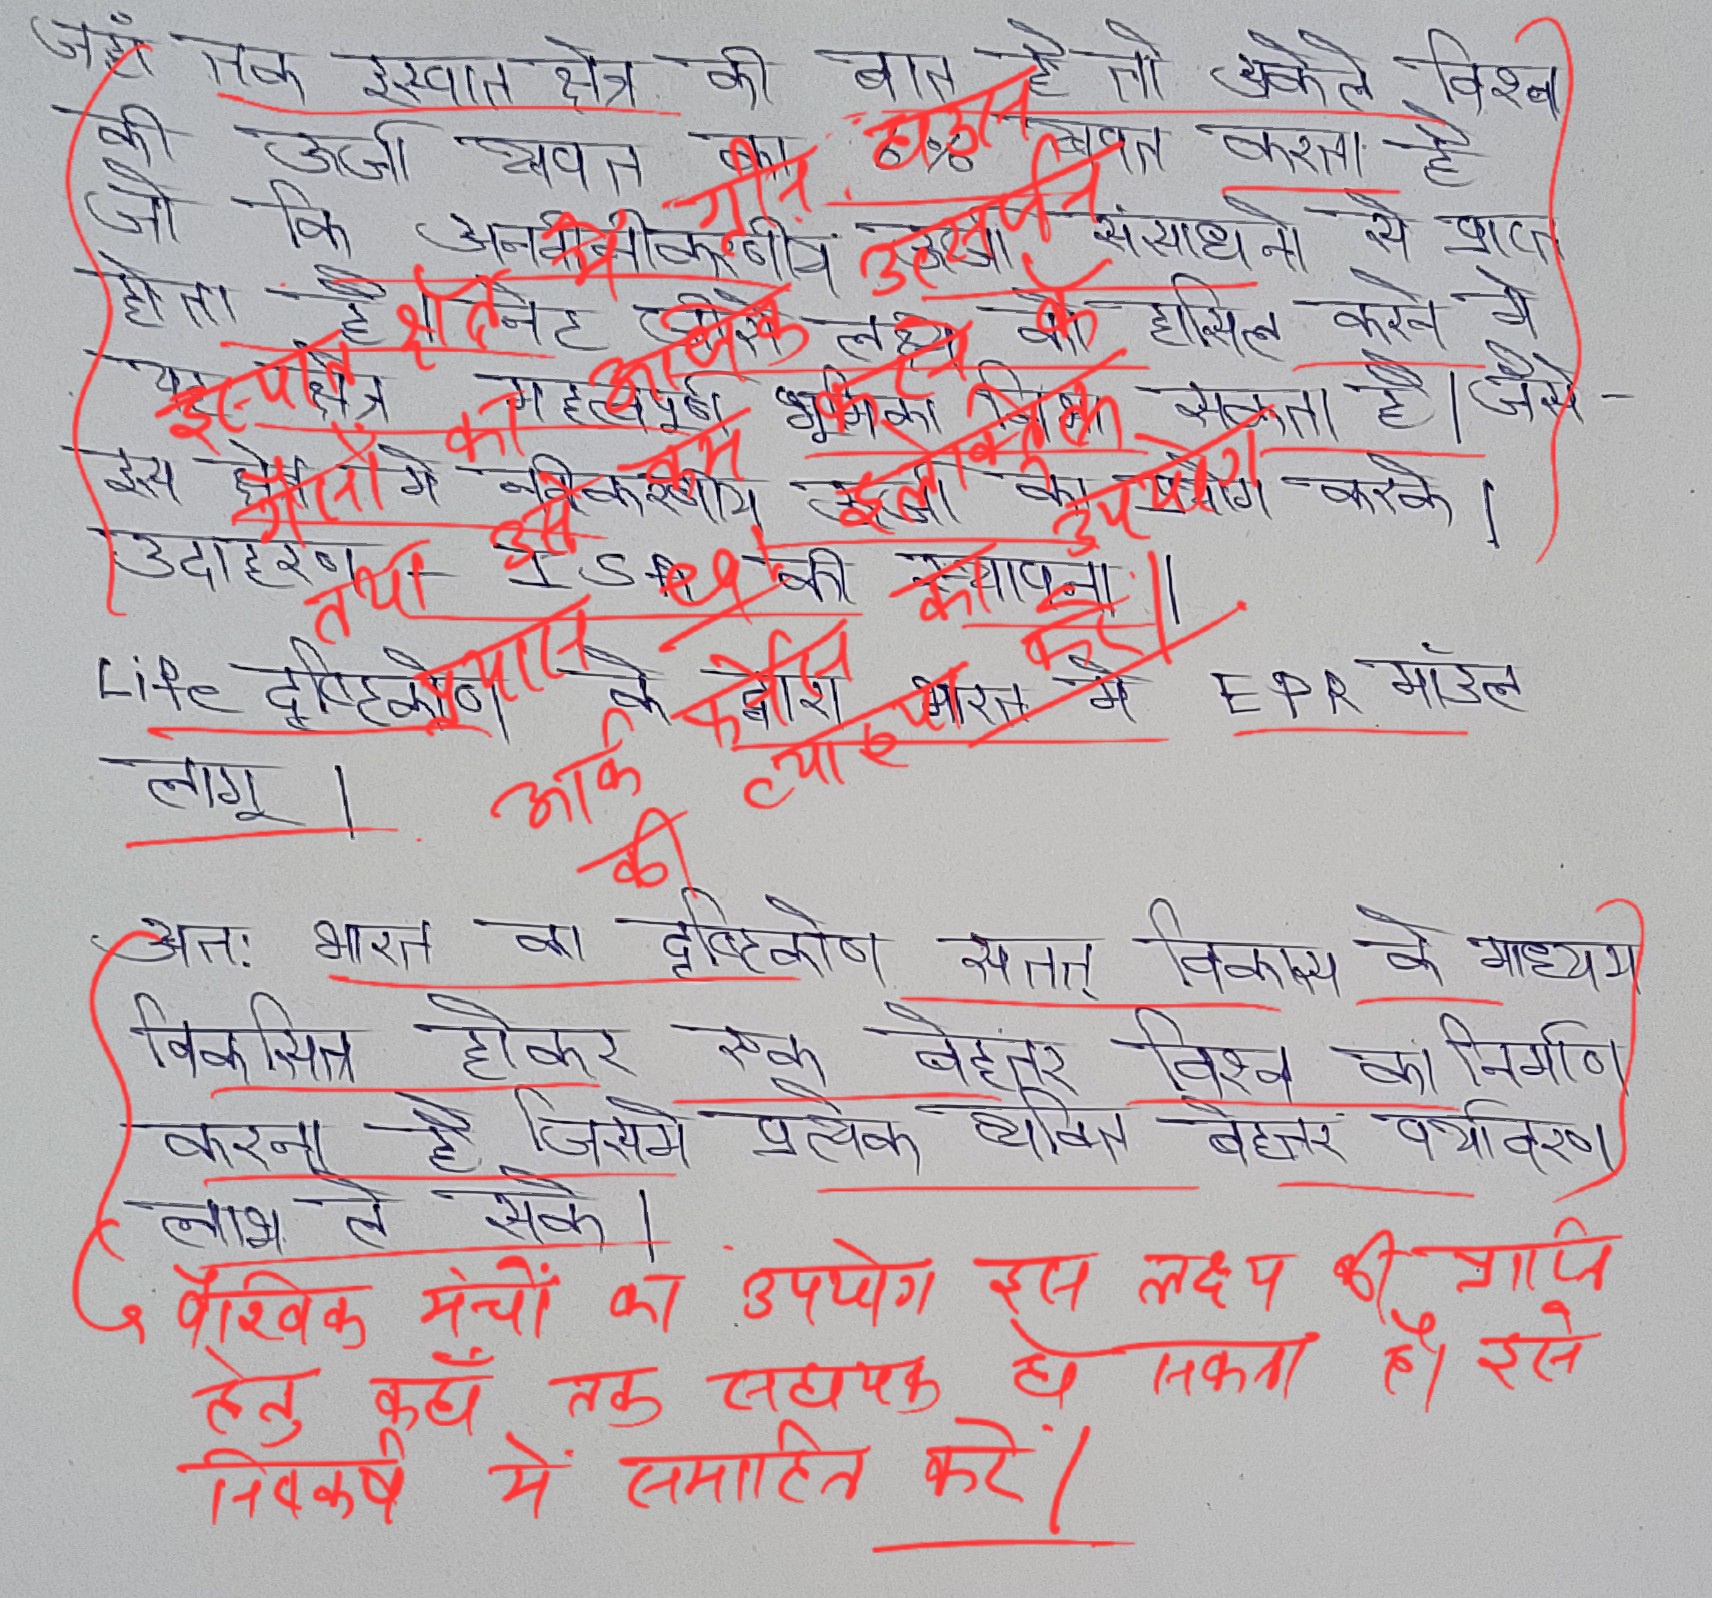 जहाँ तक इस्पात क्षेत्र की बात है तो अकेले विश्व
की ऊर्जा खपत का 8% खपत करता है
जो कि अनवीनीकरणीय ऊर्जा संसाधनो से प्राप्त
होता है। नेट जीरो लक्ष्य को हासिल करने मे
यह क्षेत्र महत्वपूर्ण भूमिका निभा सकता है। जैसे -
इस क्षेत्र मे नवीकरणीय ऊर्जा का प्रयोग करके।
उदाहरण - ISA की स्थापना।
Life दृष्टिकोण के द्वारा भारत मे EPR मॉडल
लागू।
इस्पात क्षेत्र में ग्रीन हाउस
गैसों का अधिक उत्सर्जन
तथा उसे कम करने के
प्रयास इलेक्ट्रिक
आर्क फर्नेस का उपयोग
की व्याख्या करें।
अतः भारत का दृष्टिकोण सतत् विकास के माध्यम
विकसित होकर एक बेहतर विश्व का निर्माण
करना है जिसमे प्रत्येक व्यक्ति बेहतर पर्यावरण
लाभ ले सके।
वैश्विक मंचों का उपयोग इस लक्ष्य की प्राप्ति
हेतु कहाँ तक सहायक हो सकता है। इसे
निष्कर्ष में समाहित करें।